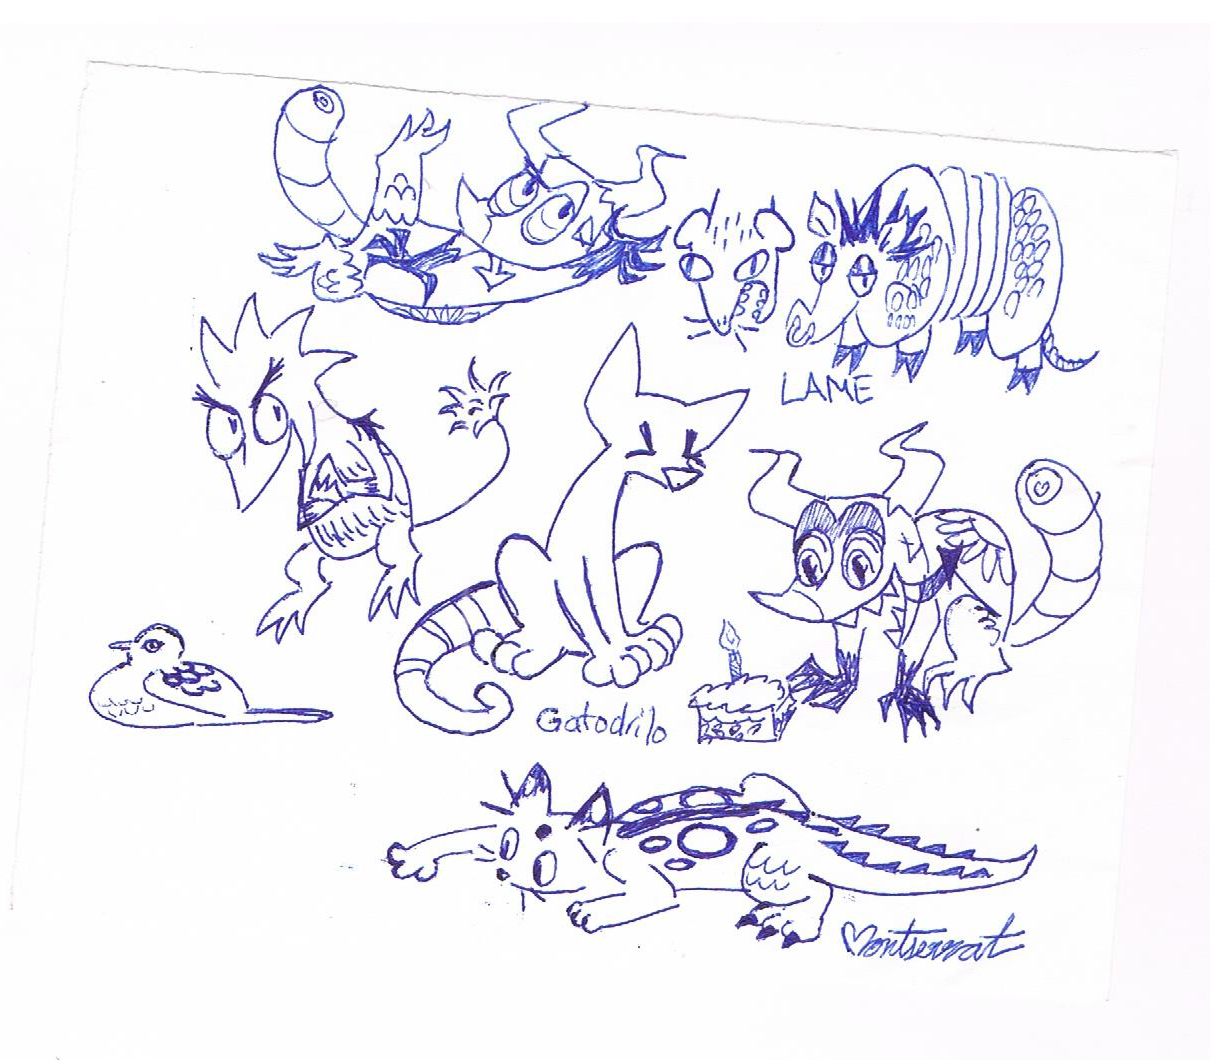 LAME
Gatodrilo
Montserrat